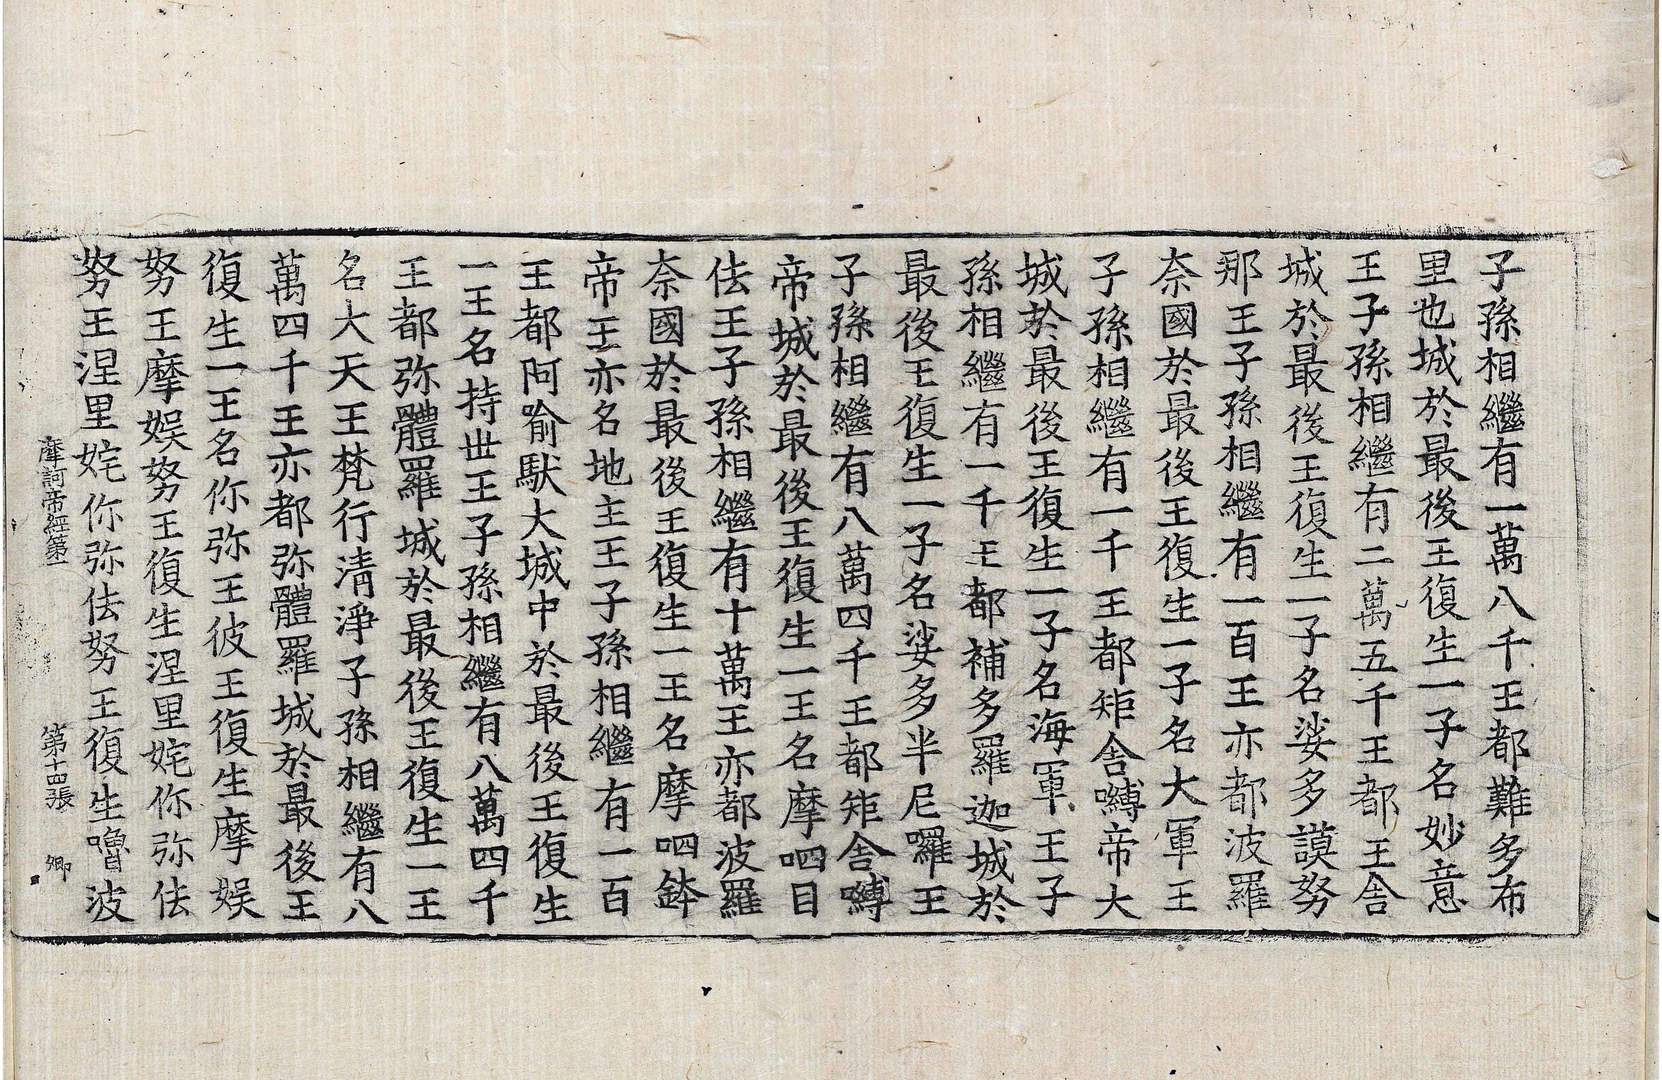 子孫相繼有一萬八千王都難多布
里也城於最後王復生一子名妙意
王子孫相繼有二萬五千王都王舍
城於最後王復生一子名娑多謨努
那王子孫相繼有一百王亦都波羅
奈國於最後王復生一子名大軍王
子孫相繼有一千王都矩舍嚩帝大
城於最後王復生一子名海軍王子
孫相繼有一千王都補多羅迦城於
最後王復生一子名娑多半尼囉王
子孫相繼有八萬四千王都矩舍嚩
帝城於最後王復生一王名摩呬目
佉王子孫相繼有十萬王亦都波羅
奈國於最後王復生一王名摩呬鉢
帝王亦名地主王子孫相繼有一百
王都阿喻馱大城中於最後王復生
一王名持世王子孫相繼有八萬四千
王都弥體羅城於最後王復生一王
名大天王梵行清淨子孫相繼有八
萬四千王亦都弥體羅城於最後王
復生一王名你弥王彼王復生摩娱
努王摩娱努王復生涅里姹你弥佉
努王涅里姹你弥佉努王復生嚕波
摩訶帝經第一 第十四張 卿